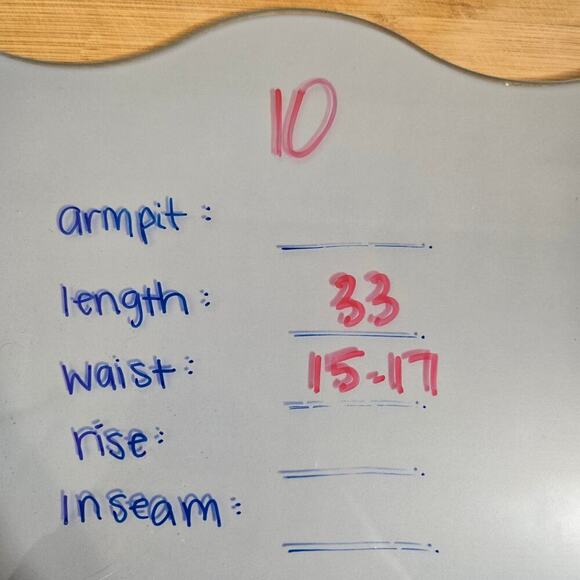 10
armpit:
length: 33
waist: 15-17
rise:
inseam: